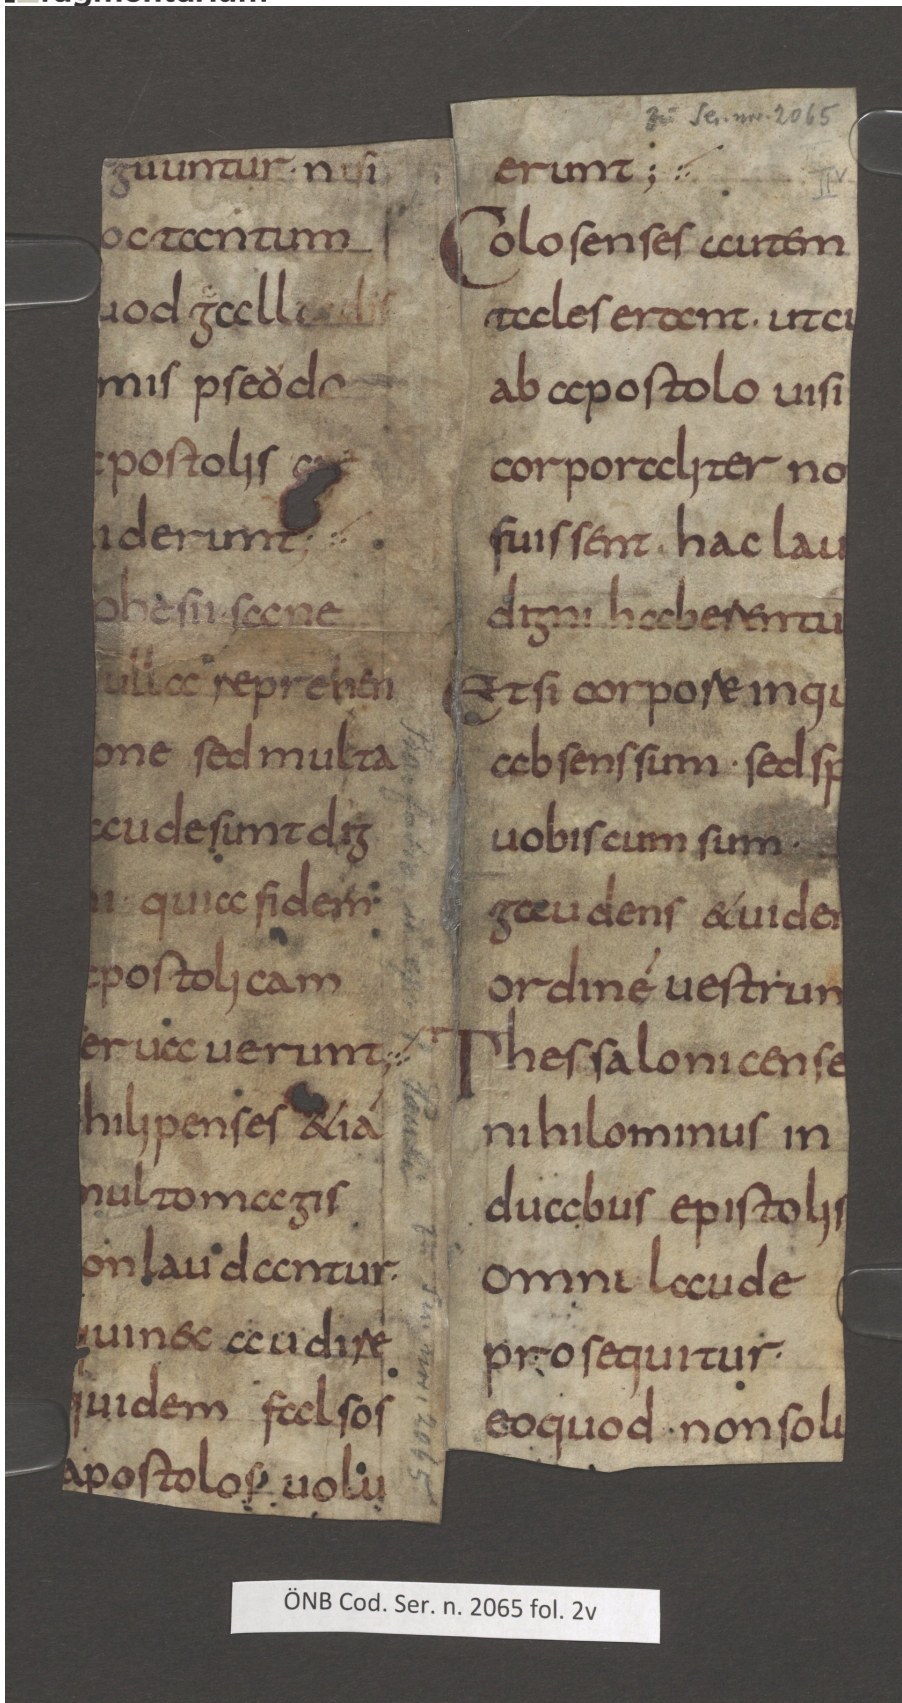 guuntur· nisi
octantum
uod galladis
mis pseodo
postolis
iderunt;
phesii· sane
ulla reprehen
one sed multa
audesunt dig
ni· quia fidem
apostolicam
seruauerunt;
hilipenses &iā
multomagis
on laudantur·
quinec audire
quidem falsos
apostolos uolu
zu Ser. nr. 2065
IIv
erunt;
Colosenses autem
tales erant· utcu
ab apostolo uisi
corporaliter no
fuissent· hac lau
digni haberentu
Etsi corpore inqu
absens sum· sed sp
uobiscum sum·
gaudens & uiden
ordinē uestrum
Thessalonicense
nihilominus in
duabus epistolis
omni laude
prosequitur·
eoquod· nonsolu
ÖNB Cod. Ser. n. 2065 fol. 2v